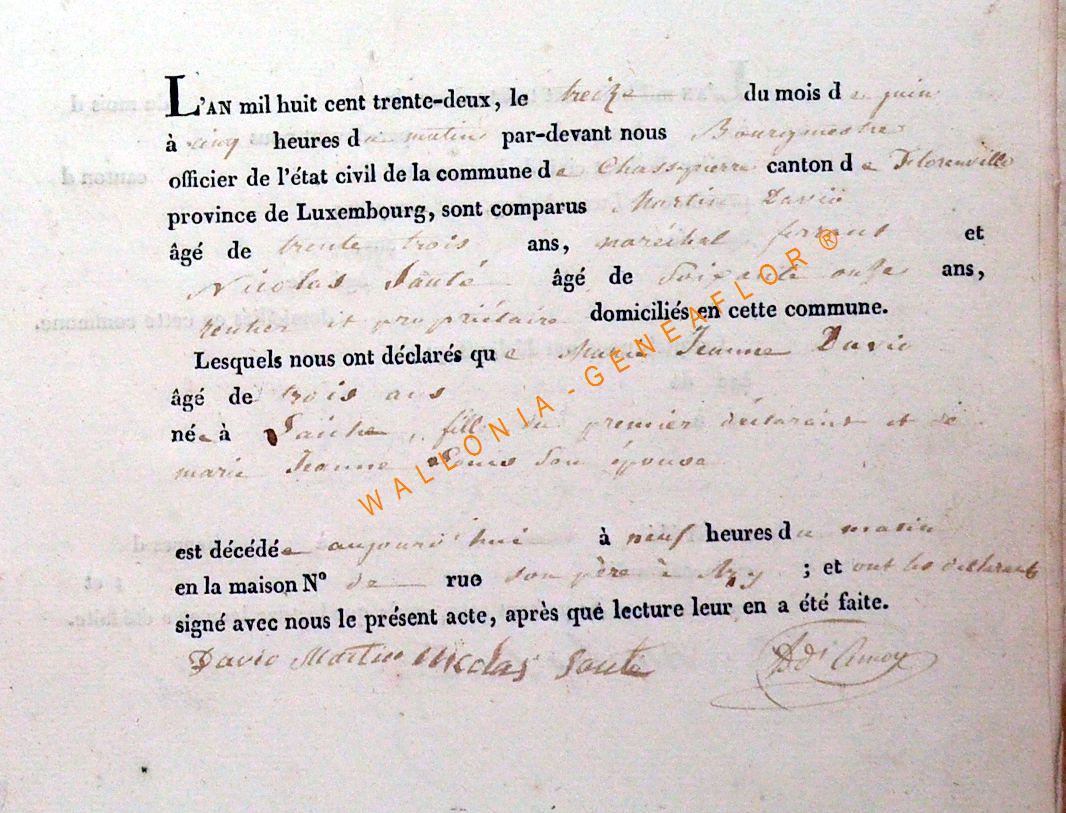 L'AN mil huit cent trente-deux, le treize du mois de juin
à cinq heures du matin par-devant nous Bourgmestre
officier de l'état civil de la commune de Chassepierre canton de Florenville
province de Luxembourg, sont comparus Martin David
âgé de trente trois ans, maréchal ferrant et
Nicolas Santé âgé de Soixante onze ans,
et propriétaire domiciliés en cette commune.
Lesquels nous ont déclarés que Marie Jeanne David
âgé de trois ans
née à fille du premier déclarant et de
marie Jeanne Louis son épouse
est décédée aujourd'hui à neuf heures du matin
en la maison Nº de rue son père à Azy ; et ont les déclarants
signé avec nous le présent acte, après que lecture leur en a été faite.
David Martin Nicolas Santé
WALLONIA - GENEAFLOR ®